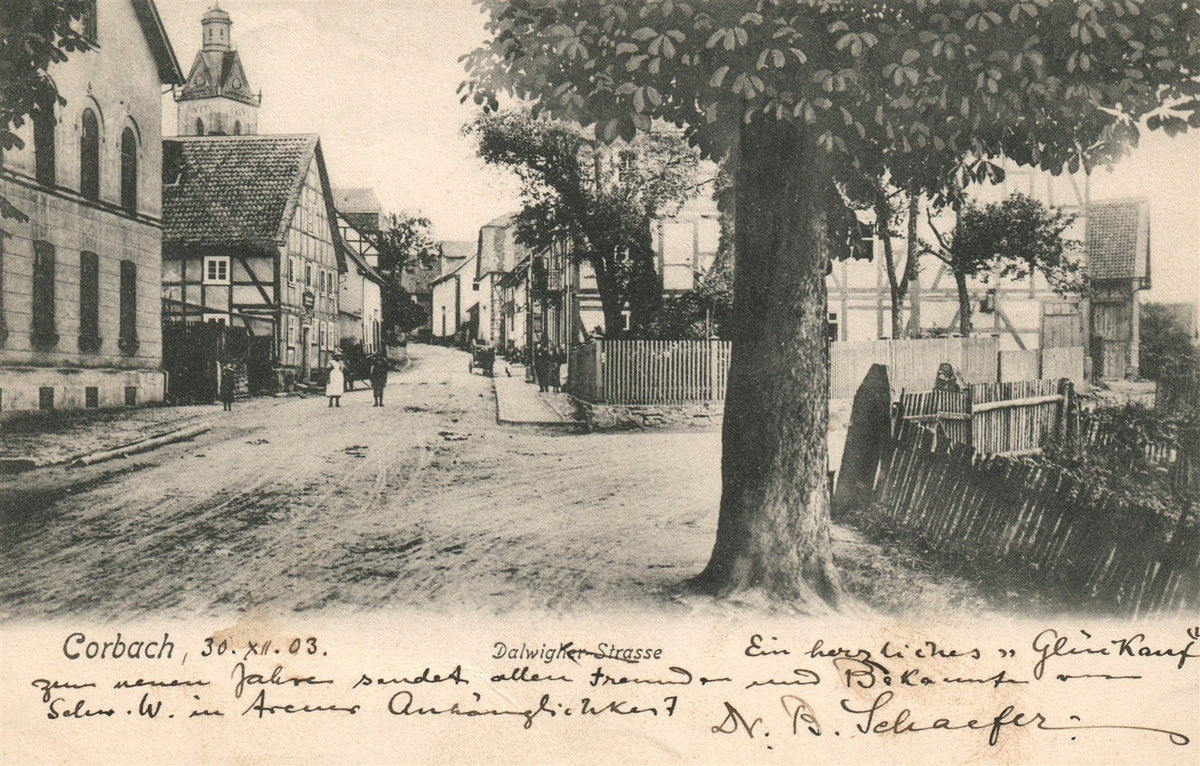 Corbach, 30. XII. 03.
Dalwigker-Strasse
Ein herzliches „Glückauf"
zum neuen Jahre sendet allen Freunden und Bekannten von
Schw. W. in treuer Anhänglichkeit
Dr. B. Schaefer.